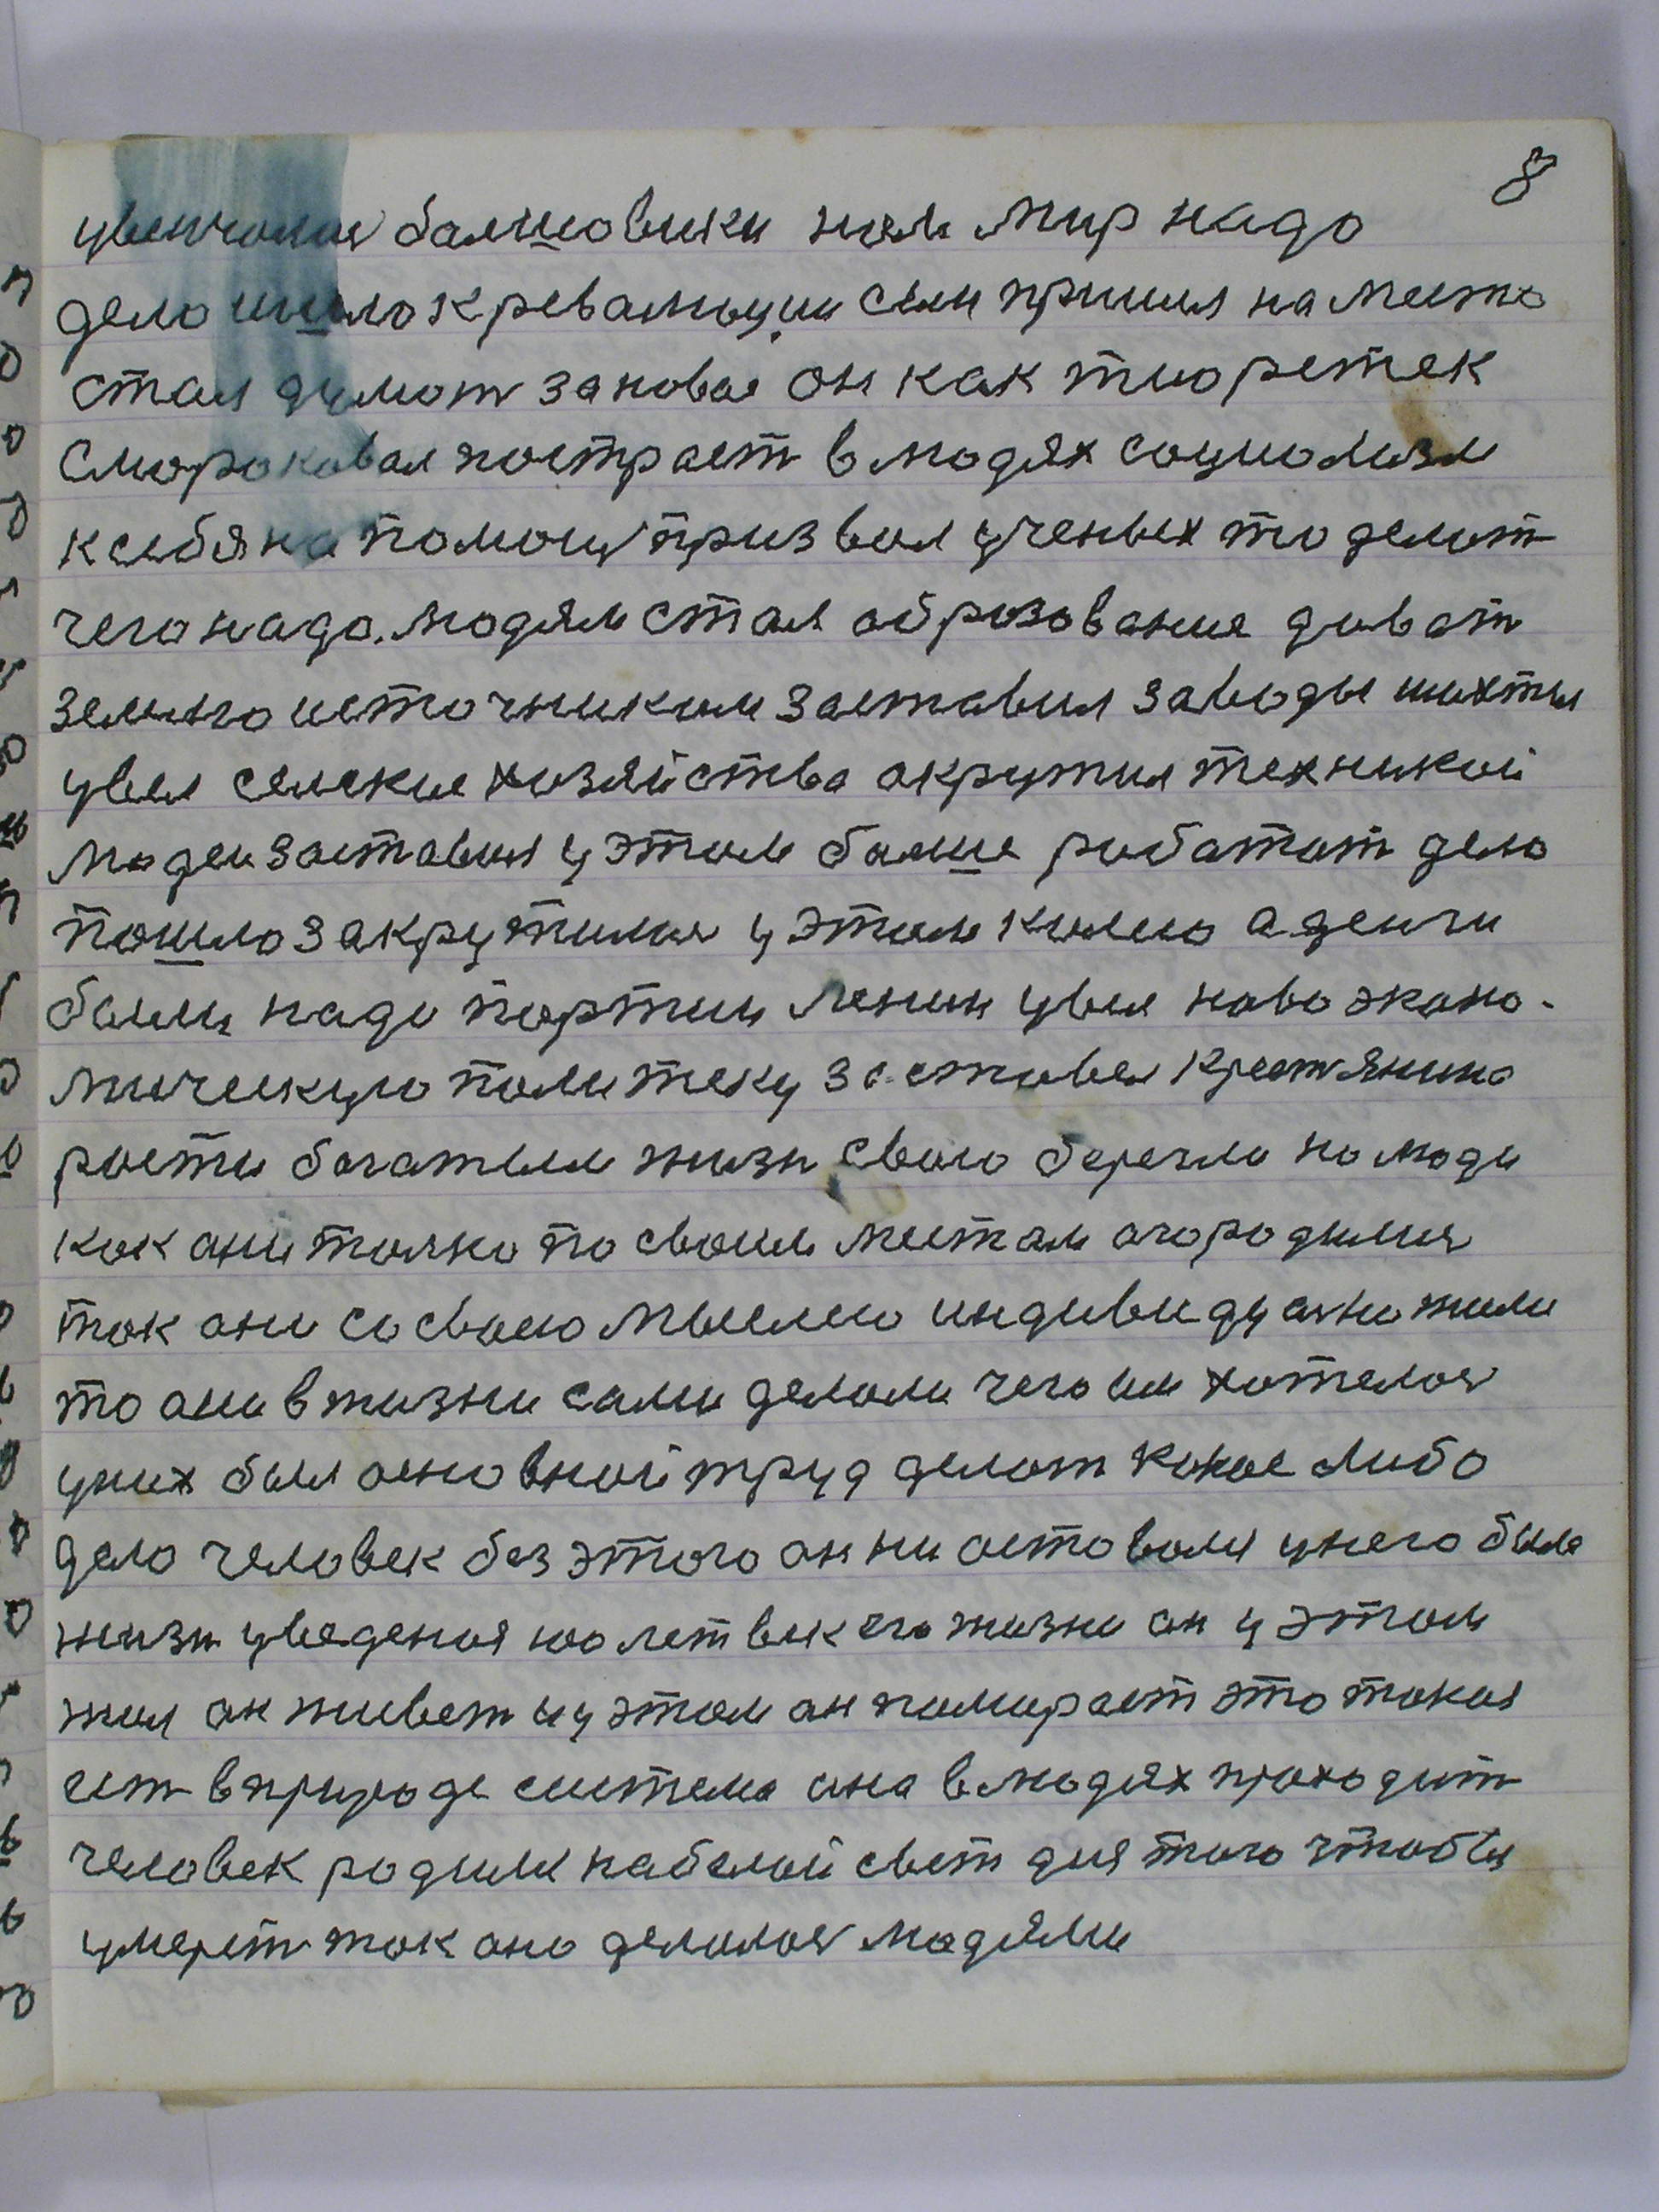 8
увенчолас балшовики нам мир надо
дело шшло к революции сам пришил на место
стал думат зановае он как тиоретек
смороковал построет в людях социолизм
к себя на помощ призвал ученых то делат
чего надо. людям стал оброзования дават
землю источником заставил заводы шахты
увел селские хозяйства окружил техникой
людей заставил у этом балше работат дело
пошло закрутилас у этом колисо а денги
были надо портии Ленин увел ново эконо-
мическую политеку заставел крестянино
рости богатыем жизн свою берегли но люди
как ани толко по своим местам огородилис
ток они со своею мыслею индивидуално жили
то ани в жизни сами делоли чего им хотелос
у них был основной труд делат какое либо
дело человек без этого он ни оставолся у него была
жизн уведеноя 100 лет век его жизни он у этом
жил он живет и у этом он помирает это токоя
ест в природе система она в людях проходит
человек родился на белой свет для того чтобы
умерет ток оно делолос людями